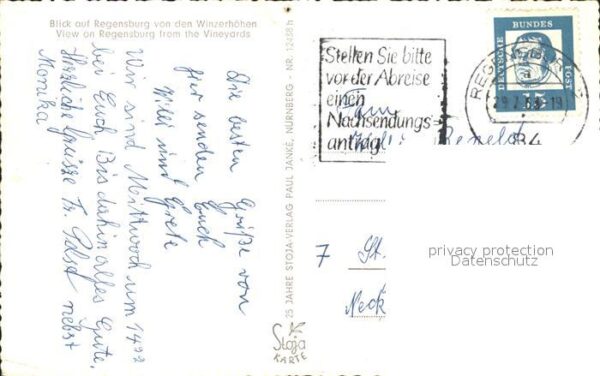 Blick auf Regensburg von den Winzerhöhen
View on Regensburg from the Vineyards
Die besten Grüße von
hier senden Euch
Willi und Grete
Wir sind Mittwoch um 14 22
bei Euch. Bis dahin alles Gute,
Herzliche Grüsse Fr. Pabst nebst
Monika
25 JAHRE STOJA-VERLAG PAUL JANKE, NÜRNBERG - NR. 12488 h
Stoja
KARTE
Stellen Sie bitte
vor der Abreise
einen
Nachsendungs
antrag!
DEUTSCHE
BUNDES
POST
15
REGENSBURG
Fam.
7
St.
Neck
privacy protection
Datenschutz